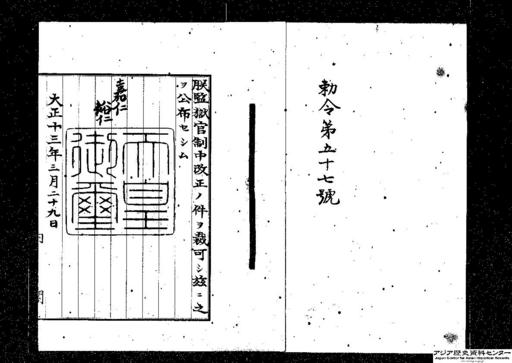 勅令第五十七號
朕監獄官制中改正ノ件ヲ裁可シ玆ニ之
ヲ公布セシム
嘉仁
裕仁
天皇
御璽
大正十三年三月二十九日
内
閣
アジア歴史資料センター
Japan Center for Asian Historical Records